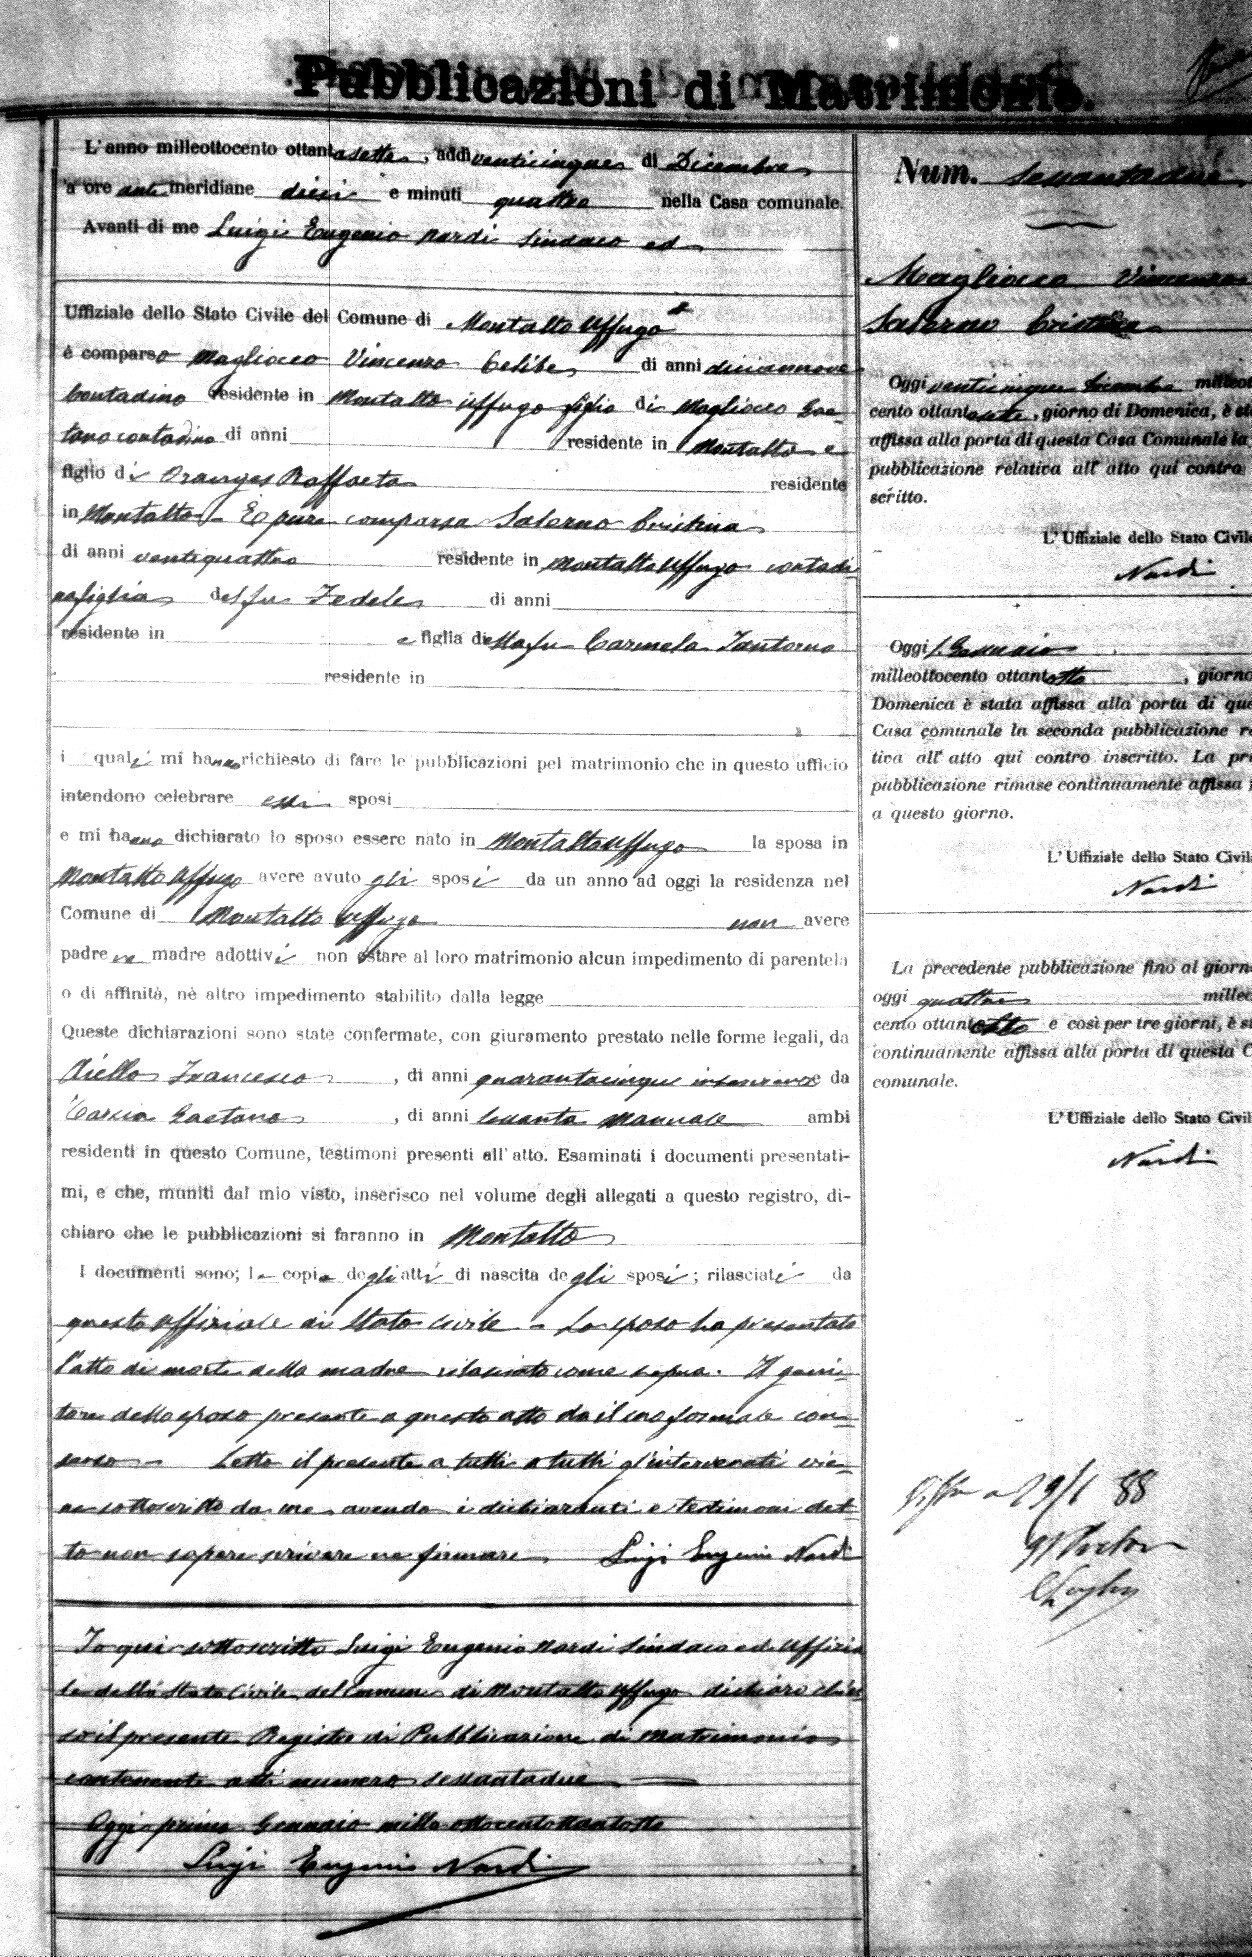 Pubblicazioni di Matrimonio.
L'anno milleottocento ottantasette, addì venticinque di Dicembre
a ore anti meridiane dieci e minuti quattro nella Casa comunale.
Avanti di me Luigi Eugenio Nardi Sindaco ed
Uffiziale dello Stato Civile del Comune di Montalto Uffugo
è comparso Magliocco Vincenzo Celibe di anni diciannove
Contadino residente in Montalto Uffugo figlio di Magliocco Gae=
tano contadino di anni residente in Montalto e
figlio di Oranges Raffaela residente
in Montalto. È pure comparsa Salerno Cristina
di anni ventiquattro residente in Montalto Uffugo contadi
na figlia del fu Fedele di anni
residente in e figlia della fu Carmela Tantorno
residente in
i quali mi hanno richiesto di fare le pubblicazioni pel matrimonio che in questo ufficio
intendono celebrare essi sposi
e mi hanno dichiarato lo sposo essere nato in Montalto Uffugo la sposa in
Montalto Uffugo avere avuto gli sposi da un anno ad oggi la residenza nel
Comune di Montalto Uffugo non avere
padre ne madre adottivi non ostare al loro matrimonio alcun impedimento di parentela
o di affinità, nè altro impedimento stabilito dalla legge
Queste dichiarazioni sono state confermate, con giuramento prestato nelle forme legali, da
Aiello Francesco, di anni quarantacinque inserviente da
Gaetano, di anni sessanta Manuale ambi
residenti in questo Comune, testimoni presenti all'atto. Esaminati i documenti presentati-
mi, e che, muniti dal mio visto, inserisco nel volume degli allegati a questo registro, di-
chiaro che le pubblicazioni si faranno in Montalto
I documenti sono; le copie degli atti di nascita degli sposi; rilasciati da
questo Uffiziale di Stato Civile. Lo sposo ha presentato
l'atto di morte della madre rilasciato come sopra. Il geni=
tore dello sposo presente a questo atto da il suo formale con=
senso. Letto il presente a tutti a tutti gl'intervenuti vie=
ne sottoscritto da me avendo i dichiaranti e testimoni det=
to non sapere scrivere ne firmare. Luigi Eugenio Nardi
Io qui sottoscritto Luigi Eugenio Nardi Sindaco ed Uffizia
le dello Stato Civile del Comune di Montalto Uffugo dichiaro chiu
so il presente Registro di Pubblicazione di Matrimonio
contenente atti numero sessantadue
Oggi primo Gennaio mille ottocentottantotto
Luigi Eugenio Nardi
Num. Sessantadue
Magliocco Vincenzo
Salerno Cristina
Oggi venticinque Dicembre milleot
cento ottantasette, giorno di Domenica, è sta
affissa alla porta di questa Casa Comunale la
pubblicazione relativa all'atto qui contro
scritto.
L'Uffiziale dello Stato Civile
Nardi
Oggi 1. Gennaio
milleottocento ottantotto, giorno
Domenica è stata affissa alla porta di que
Casa comunale la seconda pubblicazione re
tiva all'atto qui contro inscritto. La pri
pubblicazione rimase continuamente affissa
a questo giorno.
L'Uffiziale dello Stato Civil
Nardi
La precedente pubblicazione fino al giorn
oggi quattro milleo
cento ottantotto e così per tre giorni, è st
continuamente affissa alla porta di questa C
comunale.
L'Uffiziale dello Stato Civil
Nardi
29/1 88